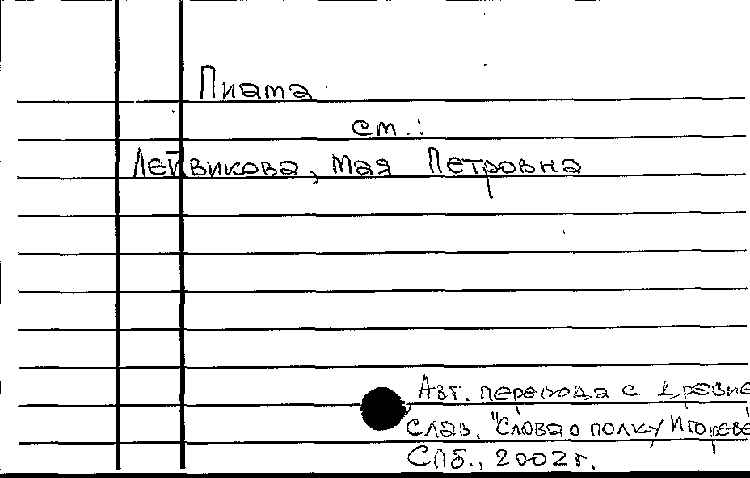 Пиата
см.:
Лейвикова, Мая Петровна
Авт. перевода с древне
слав. "Слова о полку Игореве"
СПб., 2002г.